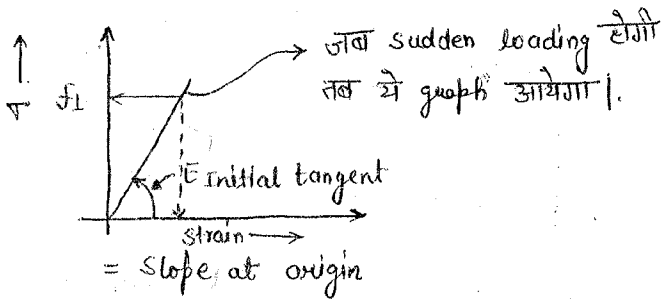 जब sudden loading होगी
तब ये graph आयेगा।.
σ f1
E Initial tangent
strain
= Slope at origin